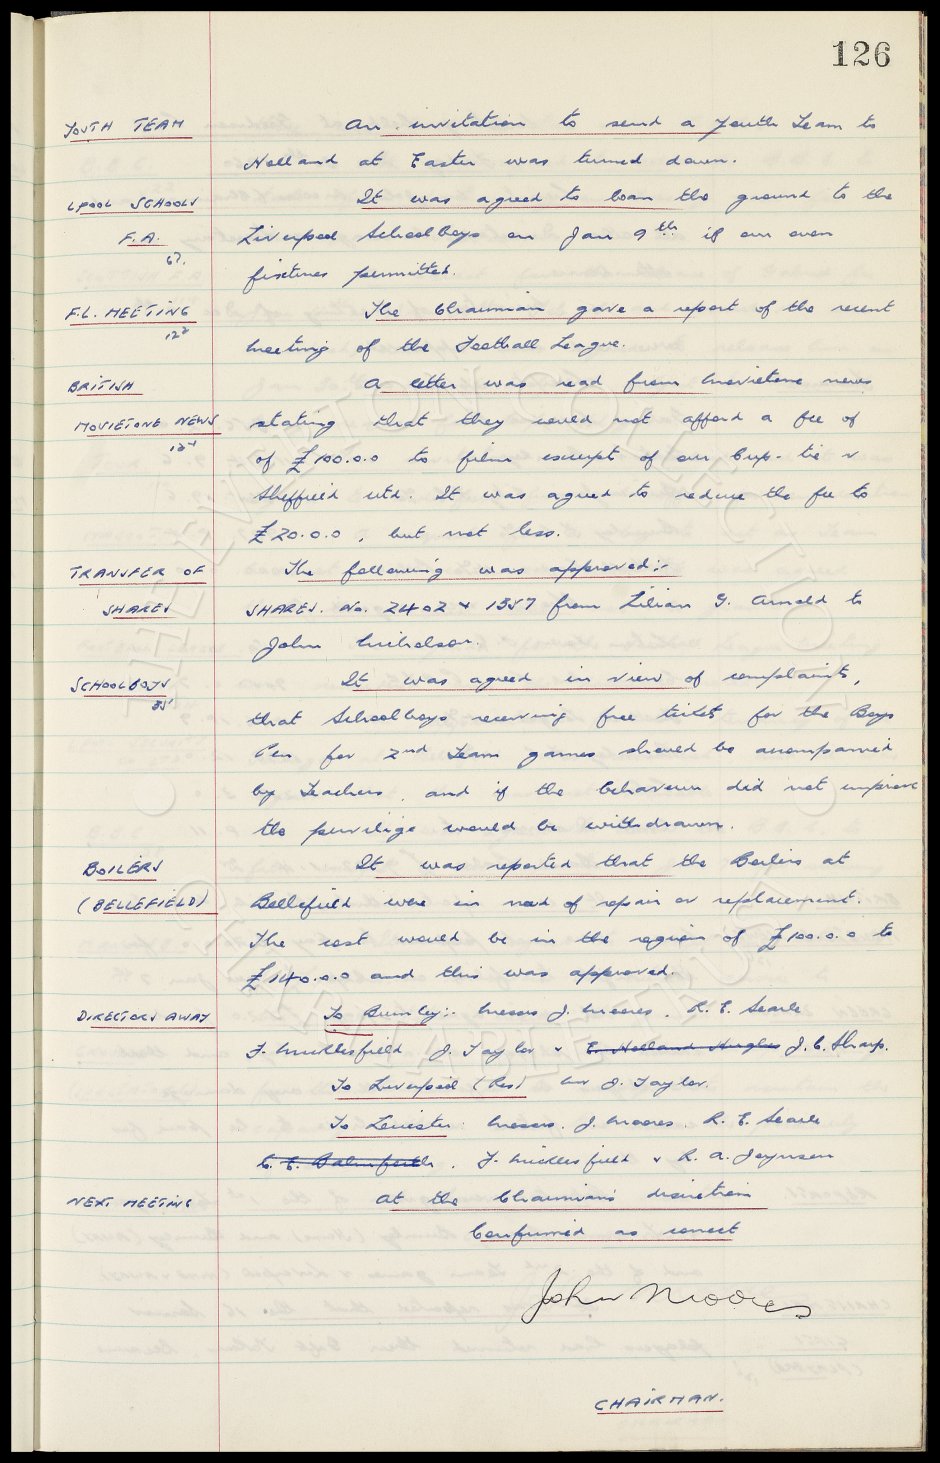 126
YOUTH TEAM An invitation to send a Youth Team to
Holland at Easter was turned down.
LPOOL SCHOOLS It was agreed to loan the ground to the
F.A. Liverpool Schoolboys on Jan 9th if our own
67. fixtures permitted.
F.L. MEETING The Chairman gave a report of the recent
meeting of the Football League.
BRITISH A letter was read from Movietone news
MOVIETONE NEWS stating that they could not afford a fee of
of £100.0.0 to film excerpt of our Cup-tie v
Sheffield Utd. It was agreed to reduce the fee to
£20.0.0, but not less.
TRANSFER OF The following was approved:-
SHARES SHARES. No. 2402 & 1357 from Lilian G. Arnold to
John Nicholson.
SCHOOLBOYS It was agreed in view of complaints,
that Schoolboys receiving free tickets for the Boys
Pen for 2nd Team games should be accompanied
by Teachers, and if the behaviour did not improve
the privilige would be withdrawn.
BOILERS It was reported that the Boilers at
(BELLEFIELD) Bellefield were in need of repair or replacement.
The cost would be in the region of £100.0.0 to
£140.0.0 and this was approved.
DIRECTORS AWAY To Burnley:- Messrs J. Moores, R. E. Searle
F. Micklesfield J. Taylor & E. Holland Hughes J. C. Sharp.
To Liverpool (Res) Mr J. Taylor.
To Leicester: Messrs. J. Moores, R. E. Searle
C. E. Balmforth, F. Micklesfield & R. A. Joynson
NEXT MEETING At the Chairman's discretion
Confirmed as correct
John Moores
CHAIRMAN.